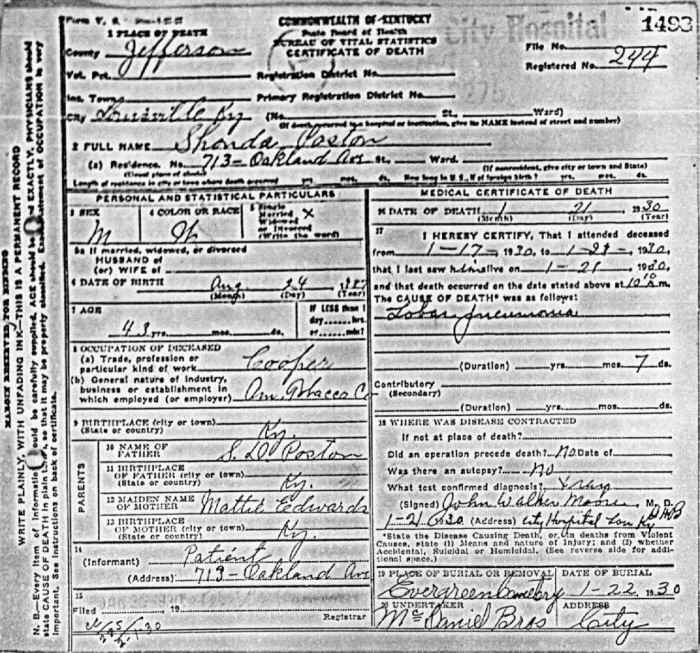 Form V. S.
COMMONWEALTH OF KENTUCKY
City Hospital
1493
1 PLACE OF DEATH
State Board of Health
BUREAU OF VITAL STATISTICS
CERTIFICATE OF DEATH
County Jefferson
File No.
Registered No. 244
Vot. Pct.
Registration District No.
Ins. Town
Primary Registration District No.
City Louisville Ky (No. St., Ward)
(If death occurred in a hospital or institution, give its NAME instead of street and number)
2 FULL NAME Shonda Poston
(a) Residence. No. 713 - Oakland Ave St., Ward.
(Usual place of abode) (If nonresident, give city or town and State)
Length of residence in city or town where death occurred yrs. mos. ds. How long in U. S., if of foreign birth? yrs. mos. ds.
PERSONAL AND STATISTICAL PARTICULARS
3 SEX
M
4 COLOR OR RACE
Wh
5 Single
Married X
Widowed
or Divorced
(Write the word)
5a If married, widowed, or divorced
HUSBAND of
(or) WIFE of
6 DATE OF BIRTH Aug 24
(Month) (Day) (Year)
7 AGE
IF LESS than 1
day......hrs.
or......min?
yrs. mos. ds.
8 OCCUPATION OF DECEASED
(a) Trade, profession or
particular kind of work Cooper
(b) General nature of industry,
business or establishment in
which employed (or employer) Am Tobacco Co
9 BIRTHPLACE (city or town)
(State or country) Ky.
PARENTS
10 NAME OF
FATHER S. D. Poston
11 BIRTHPLACE
OF FATHER (city or town)
(State or country) Ky.
12 MAIDEN NAME
OF MOTHER Mattie Edwards
13 BIRTHPLACE
OF MOTHER (city or town)
(State or country) Ky.
14
(Informant) Patient
(Address) 713 - Oakland Ave
15
Filed 19
Registrar
MEDICAL CERTIFICATE OF DEATH
16 DATE OF DEATH 1 21 1930
(Month) (Day) (Year)
17
I HEREBY CERTIFY, That I attended deceased
from 1-17-, 1930, to 1-21-, 1930,
that I last saw him alive on 1-21, 1930,
and that death occurred on the date stated above at 10 m.
The CAUSE OF DEATH* was as follows:
Lobar Pneumonia
(Duration) yrs. mos. 7 ds.
Contributory
(Secondary)
(Duration) yrs. mos. ds.
18 WHERE WAS DISEASE CONTRACTED
If not at place of death?
Did an operation precede death? No Date of
Was there an autopsy? No
What test confirmed diagnosis? Xray
(Signed) John Walker Moore, M. D.
1-21 1930 (Address) City Hospital Lou Ky
*State the Disease Causing Death, or, in deaths from Violent
Causes, state (1) Means and nature of Injury; and (2) whether
Accidental, Suicidal or Homicidal. (See reverse side for addi-
tional space.)
19 PLACE OF BURIAL OR REMOVAL
Evergreen Cemetery
DATE OF BURIAL
1-22, 1930
20 UNDERTAKER
McDaniel Bros
ADDRESS
City
MARGIN RESERVED FOR BINDING
WRITE PLAINLY, WITH UNFADING INK—THIS IS A PERMANENT RECORD
N. B.—Every item of information should be carefully supplied. AGE should be stated EXACTLY. PHYSICIANS should
state CAUSE OF DEATH in plain terms, so that it may be properly classified. Exact statement of OCCUPATION is very
important. See instructions on back of certificate.